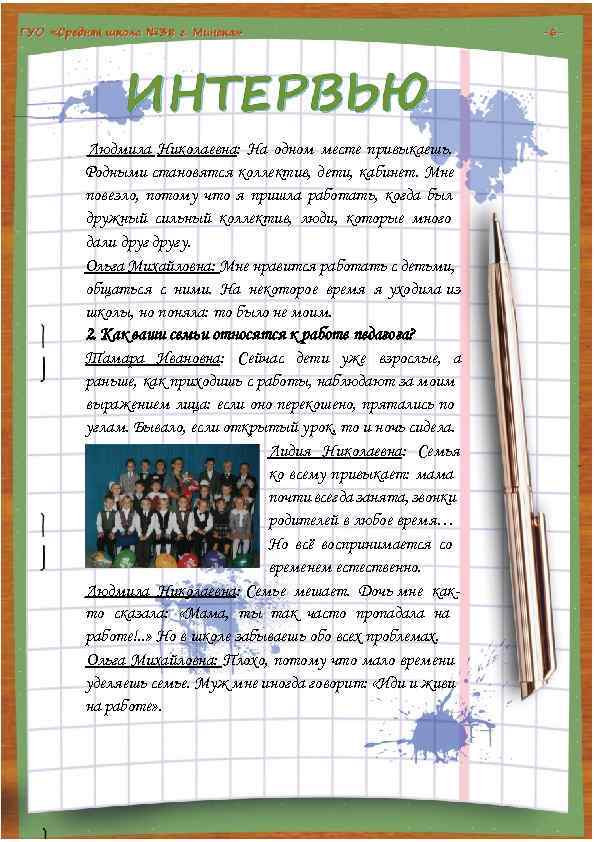 ГУО «Средняя школа №38 г. Минска»
-6-
ИНТЕРВЬЮ
Людмила Николаевна: На одном месте привыкаешь.
Родными становятся коллектив, дети, кабинет. Мне
повезло, потому что я пришла работать, когда был
дружный сильный коллектив, люди, которые много
дали друг другу.
Ольга Михайловна: Мне нравится работать с детьми,
общаться с ними. На некоторое время я уходила из
школы, но поняла: то было не моим.
2. Как ваши семьи относятся к работе педагога?
Тамара Ивановна: Сейчас дети уже взрослые, а
раньше, как приходишь с работы, наблюдают за моим
выражением лица: если оно перекошено, прятались по
углам. Бывало, если открытый урок, то и ночь сидела.
Лидия Николаевна: Семья
ко всему привыкает: мама
почти всегда занята, звонки
родителей в любое время…
Но всё воспринимается со
временем естественно.
Людмила Николаевна: Семье мешает. Дочь мне как-
то сказала: «Мама, ты так часто пропадала на
работе!..» Но в школе забываешь обо всех проблемах.
Ольга Михайловна: Плохо, потому что мало времени
уделяешь семье. Муж мне иногда говорит: «Иди и живи
на работе».